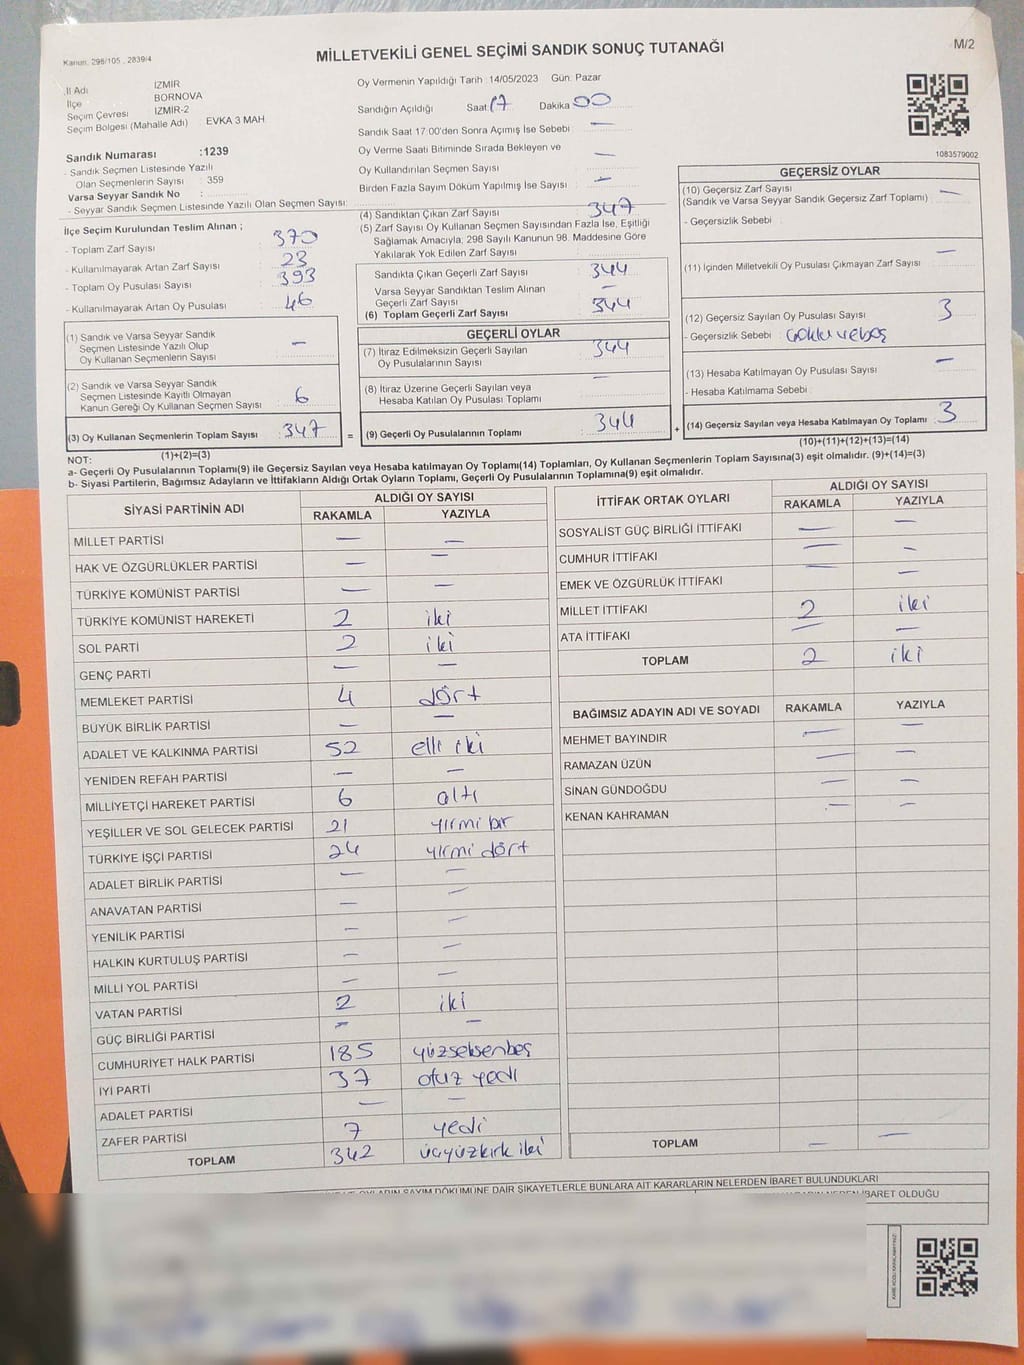 Kanun. 298/105 , 2839/4
MİLLETVEKİLİ GENEL SEÇİMİ SANDIK SONUÇ TUTANAĞI
M/2
İl Adı İZMİR
İlçe BORNOVA
Seçim Çevresi İZMİR-2
Seçim Bölgesi (Mahalle Adı) : EVKA 3 MAH
Oy Vermenin Yapıldığı Tarih :14/05/2023 Gün: Pazar
Sandığın Açıldığı Saat 17 Dakika 00
Sandık Saat 17:00'den Sonra Açımış İse Sebebi : —
Oy Verme Saati Bitiminde Sırada Bekleyen ve
Oy Kullandırılan Seçmen Sayısı : —
Birden Fazla Sayım Döküm Yapılmış İse Sayısı : —
1083579002
Sandık Numarası :1239
- Sandık Seçmen Listesinde Yazılı
Olan Seçmenlerin Sayısı : 359
Varsa Seyyar Sandık No :
- Seyyar Sandık Seçmen Listesinde Yazılı Olan Seçmen Sayısı:
İlçe Seçim Kurulundan Teslim Alınan ;
- Toplam Zarf Sayısı : 370
- Kullanılmayarak Artan Zarf Sayısı : 23
- Toplam Oy Pusulası Sayısı : 393
- Kullanılmayarak Artan Oy Pusulası : 46
(1) Sandık ve Varsa Seyyar Sandık
Seçmen Listesinde Yazılı Olup
Oy Kullanan Seçmenlerin Sayısı : —
(2) Sandık ve Varsa Seyyar Sandık
Seçmen Listesinde Kayıtlı Olmayan
Kanun Gereği Oy Kullanan Seçmen Sayısı : 6
(3) Oy Kullanan Seçmenlerin Toplam Sayısı : 347
(1)+(2)=(3)
(4) Sandıktan Çıkan Zarf Sayısı : 347
(5) Zarf Sayısı Oy Kullanan Seçmen Sayısından Fazla İse, Eşitliği
Sağlamak Amacıyla, 298 Sayılı Kanunun 98. Maddesine Göre
Yakılarak Yok Edilen Zarf Sayısı :
Sandıkta Çıkan Geçerli Zarf Sayısı : 344
Varsa Seyyar Sandıktan Teslim Alınan
Geçerli Zarf Sayısı : —
(6) Toplam Geçerli Zarf Sayısı : 344
GEÇERLİ OYLAR
(7) İtiraz Edilmeksizin Geçerli Sayılan
Oy Pusulalarının Sayısı : 344
(8) İtiraz Üzerine Geçerli Sayılan veya
Hesaba Katılan Oy Pusulası Toplamı : —
= (9) Geçerli Oy Pusulalarının Toplamı : 344 +
GEÇERSİZ OYLAR
(10) Geçersiz Zarf Sayısı : —
(Sandık ve Varsa Seyyar Sandık Geçersiz Zarf Toplamı)
- Geçersizlik Sebebi :
(11) İçinden Milletvekili Oy Pusulası Çıkmayan Zarf Sayısı : —
(12) Geçersiz Sayılan Oy Pusulası Sayısı : 3
- Geçersizlik Sebebi :
(13) Hesaba Katılmayan Oy Pusulası Sayısı : —
- Hesaba Katılmama Sebebi :
(14) Geçersiz Sayılan veya Hesaba Katılmayan Oy Toplamı : 3
(10)+(11)+(12)+(13)=(14)
NOT:
a- Geçerli Oy Pusulalarının Toplamı(9) ile Geçersiz Sayılan veya Hesaba katılmayan Oy Toplamı(14) Toplamları, Oy Kullanan Seçmenlerin Toplam Sayısına(3) eşit olmalıdır. (9)+(14)=(3)
b- Siyasi Partilerin, Bağımsız Adayların ve İttifakların Aldığı Ortak Oyların Toplamı, Geçerli Oy Pusulalarının Toplamına(9) eşit olmalıdır.
SİYASİ PARTİNİN ADI ALDIĞI OY SAYISI
RAKAMLA YAZIYLA
MİLLET PARTİSİ — —
HAK VE ÖZGÜRLÜKLER PARTİSİ — —
TÜRKİYE KOMÜNİST PARTİSİ — —
TÜRKİYE KOMÜNİST HAREKETİ 2 iki
SOL PARTİ 2 iki
GENÇ PARTİ — —
MEMLEKET PARTİSİ 4 dört
BÜYÜK BİRLİK PARTİSİ — —
ADALET VE KALKINMA PARTİSİ 52 elli iki
YENİDEN REFAH PARTİSİ — —
MİLLİYETÇİ HAREKET PARTİSİ 6 altı
YEŞİLLER VE SOL GELECEK PARTİSİ 21 yirmi bir
TÜRKİYE İŞÇİ PARTİSİ 24 yirmi dört
ADALET BİRLİK PARTİSİ — —
ANAVATAN PARTİSİ — —
YENİLİK PARTİSİ — —
HALKIN KURTULUŞ PARTİSİ — —
MİLLİ YOL PARTİSİ — —
VATAN PARTİSİ 2 iki
GÜÇ BİRLİĞİ PARTİSİ — —
CUMHURİYET HALK PARTİSİ 185 yüzseksenbeş
İYİ PARTİ 37 otuz yedi
ADALET PARTİSİ — —
ZAFER PARTİSİ 7 yedi
TOPLAM 342 üçyüzkırk iki
İTTİFAK ORTAK OYLARI ALDIĞI OY SAYISI
RAKAMLA YAZIYLA
SOSYALİST GÜÇ BİRLİĞİ İTTİFAKI — —
CUMHUR İTTİFAKI — —
EMEK VE ÖZGÜRLÜK İTTİFAKI — —
MİLLET İTTİFAKI 2 iki
ATA İTTİFAKI — —
TOPLAM 2 iki
BAĞIMSIZ ADAYIN ADI VE SOYADI RAKAMLA YAZIYLA
MEHMET BAYINDIR — —
RAMAZAN ÜZÜN — —
SİNAN GÜNDOĞDU — —
KENAN KAHRAMAN — —
TOPLAM — —
OYLARIN SAYIM DÖKÜMÜNE DAİR ŞİKAYETLERLE BUNLARA AİT KARARLARIN NELERDEN İBARET BULUNDUKLARI
İBARET OLDUĞU